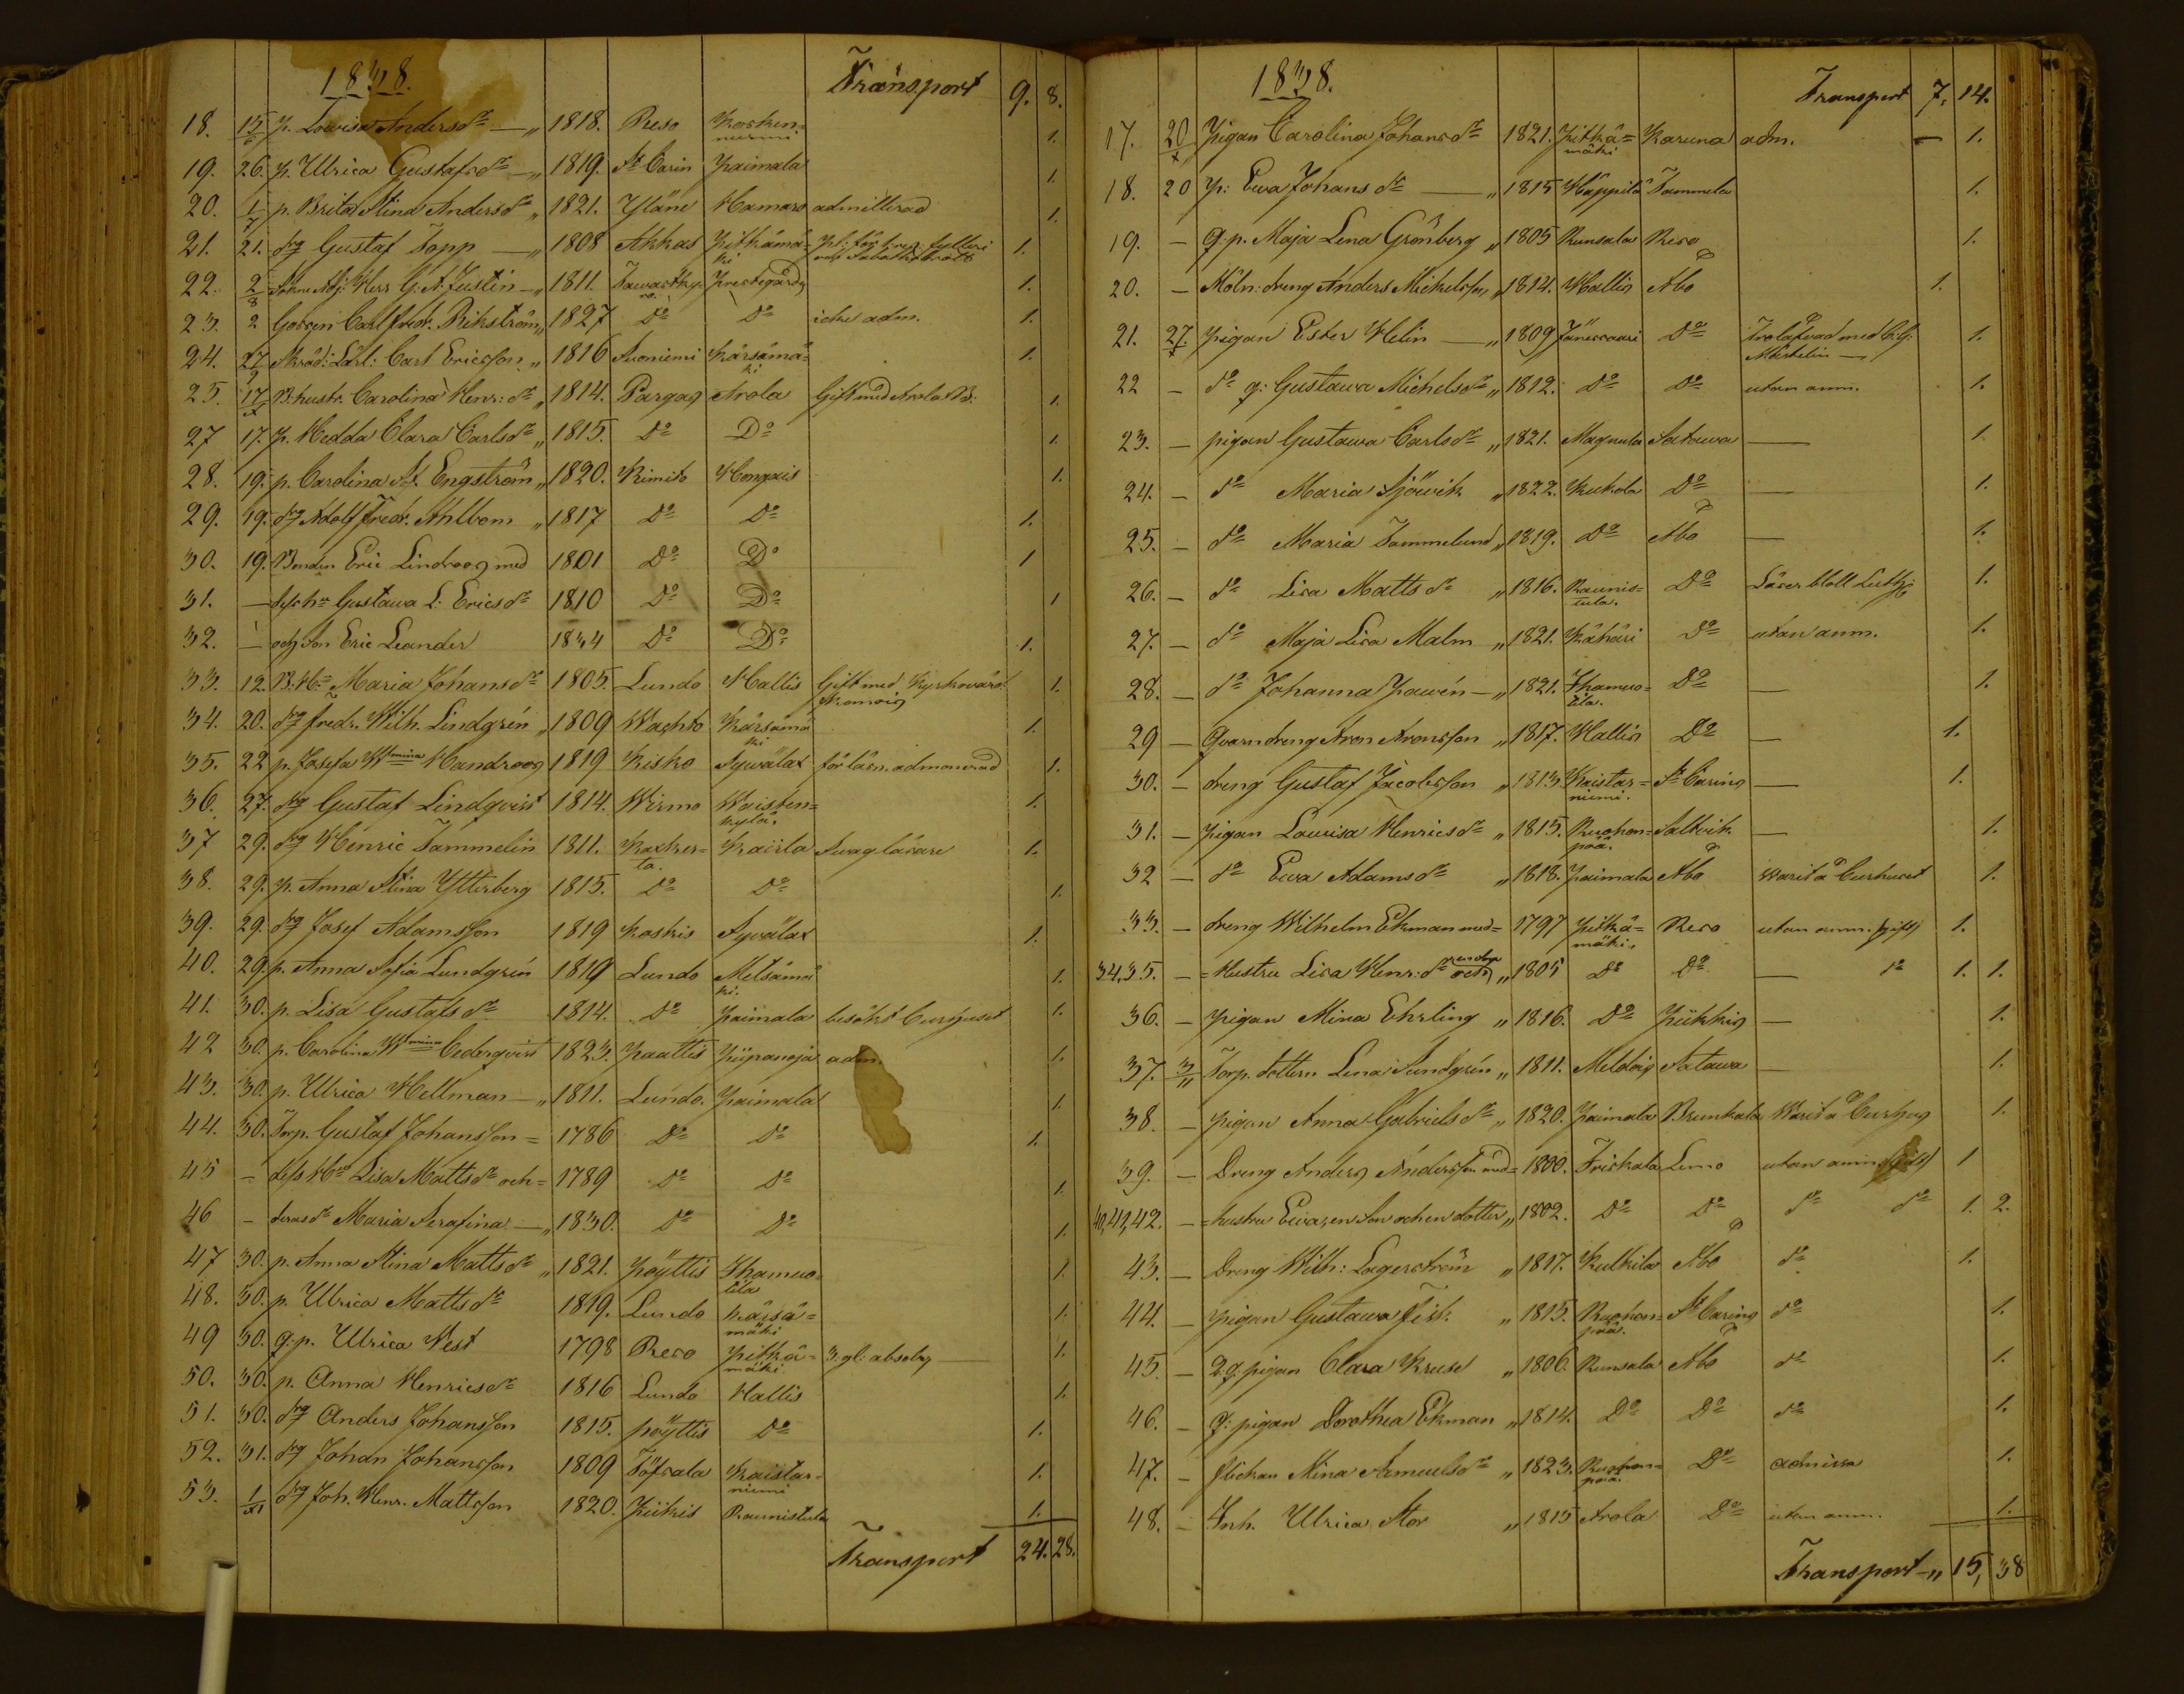 1838. Transport 9. 8.
18. 15 p. Lovisa Andersdr „ 1818. Reso Kosken= 1.
nurmi
19. 26. p. Ulrica Gustafsdr „ 1819. St Carin Paimala 1.
20. 1/7 p. Brita Stina Andersdr „ 1821. Yläne Hamaro admitterad 1.
21. 21. drg Gustaf Topp „ 1808 Akkas Pitkämä= 1.
ki
22. 2/8 Herr G. A. Justin „ 1811. Prestgård 1.
23. 2 Gossen Carl Fredr. Rikström „ 1827 Do Do icke adm. 1.
24. 27/9 Skräd: Lärl: Carl Ericsson „ 1816 Suoniemi Kärsämä= 1.
ki
25. 17/x B.hustr. Carolina Henr: dr „ 1814. Pargas Arola Gift med Arola B. 1.
27 17. p. Hedda Clara Carlsdr „ 1815. Do Do 1.
28. 19. p. Carolina S. Engström „ 1820. Kimito Hongais 1.
29. 19. drg Adolf Fredr. Ahlbom „ 1817 Do Do 1.
30. 19. Bonden Eric Lindroos med 1801 Do Do 1
31. — dess hu Gustawa L: Ericsdr 1810 Do Do 1
32. — och Son Eric Leander 1834 Do Do 1.
33. 12. B. Hu Maria Johansdr 1805. Lundo Hallis Gift med Kyrkovärd. 1.
34. 20. drg Fredr. Wilh. Lindgrén „ 1809 Wachto Kärsämä 1.
ki
35. 22 p. Josefa Wmina Handroos 1819 Kisko Sywälax för läsn. admonerad 1.
36. 27. drg Gustaf Lindqvist 1814. Wirmo Waisten= 1.
kylä.
37 29. drg Henric Tammelin 1811. Kaxker= Kairla Swag läsare 1.
ta.
38. 29. p. Anna Stina Ytterberg 1815. Do Do 1.
39. 29. drg Josef Adamsson 1819 Koskis Sywälax 1.
40. 29. p. Anna Sofia Lundgrén 1819 Lundo Metsämä 1.
ki.
41. 30. p. Lisa Gustafsdr 1814. Do Paimala besökt Curhuset 1.
42 30. p. Carolina Wmina Cederqvist 1823. Paattis Piipanoja adm. 1.
43. 30. p. Ulrica Hellman „ 1811. Lundo. Paimala 1.
44. 30. Torp. Gustaf Johansson = 1786 Do Do 1.
45 — dess Hu Lisa Mattsdr och = 1789 Do Do 1.
46 — deras dr Maria Serafina „ 1830. Do Do 1.
47 30. p. Anna Stina Mattsdr „ 1821. Pöyttis Ihamuo= 1.
tila
48. 30. p. Ulrica Mattsdr 1819. Lundo Kärsä= 1.
mäki
49 30. g. p. Ulrica West 1798 Reso Pitkä= 3. gl: absolv 1.
mäki
50. 30. p. Anna Henricsdr 1816 Lundo Hallis 1.
51. 30. drg Anders Johansson 1815. Pöyttis Do 1.
52. 31. drg Johan Johansson 1809 Töfsala Kaistar= 1.
niemi
53. 1/xi drg Joh. Henr. Mattsson 1820. Piikis Raunistula 1.
Transport 24. 28.
1838. Transport 7, 14.
17. 20/x Pigan Carolina Johansdr 1821. Pitkä= Karuna adm. — 1.
mäki
18. 20 p: Ewa Johansdr „ 1815 Käppilä Tammela 1.
19. — g. p. Maja Lena Grönberg „ 1805 Runsala Reso 1.
20. — Möln: dreng Anders Mickelsson „ 1814. Hallis Åbo 1.
21. 27. Pigan Ester Helin „ 1809 Jänessaari Do Trolofvad med C. G. 1.
22 — do g: Gustawa Michelsdr „ 1812. Do Do utan anm. 1.
23. — pigan Gustawa Carlsdr „ 1821. Magnula Satawa — 1.
24. — do Maria Sjöwik „ 1822. Kukola Do — 1.
25. — do Maria Tammelund „ 1819. Do Åbo — 1.
26. — do Lisa Mattsdr „ 1816. Raunis= Do Läser blott Luth: 1.
tula.
27. — do Maja Lisa Malm „ 1821. Kähäri Do utan anm. 1.
28. — do Johanna Pawén „ 1821. Ihamuo= Do — 1.
tila.
29 — Qvarndreng Aron Aronsson „ 1817. Hallis Do — 1.
30. — dreng Gustaf Jacobsson „ 1813. Kaistar= St Carins — 1.
niemi.
31. — Pigan Lowisa Henricsdr „ 1815. Ruohon= Saltvik — 1.
pää.
32 — do Ewa Adamsdr „ 1818. Paimala Åbo Warit å Curhuset 1.
33. — dreng Wilhelm Ekman med = 1797 Pitkä= Reso utan anm. gift 1.
mäki.
34,35. — = Hustru Lisa Henr: dr och „ 1805 Do Do — do 1. 1.
36. — Pigan Mina Ehrling „ 1816. Do Piikkis — 1.
37. 3/11 Torp. dottern Lena Sundgrén „ 1811. Meldois Satawa — 1.
38. — Pigan Anna Gabrielsdr „ 1820. Paimala Brunkala Warit å Curhus 1.
39. — Dreng Anders Andersson med = 1800. Friskala Lemo utan anm. gift 1
40,41,42. — = hustru Ewa, en Son och en dotter „ 1802. Do Do do do 1. 2.
43. — Dreng Wilh: Lagerström „ 1817. Kulkila Åbo do 1.
44. — Pigan Gustawa Fisk „ 1815. Ruohon= St Carins do 1.
pää.
45. — Q. g. pigan Clara Kruse „ 1806. Runsala Åbo do 1.
46. — Q: pigan Dorothea Ekman „ 1814. Do Do do 1.
47. — flickan Mina Samuelsdr „ 1823. Ruohon= Do admissa 1.
pää.
48. — Inh. Ulrica Stor „ 1815 Arola Do utan anm. 1.
Transport „ 15, 38